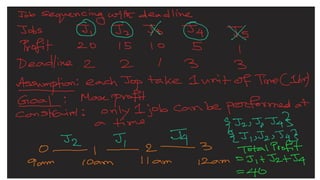 Job sequencing with deadline
Jobs J1 J2 J3 J4 J5
Profit 20 15 10 5 1
Deadline 2 2 1 3 3
Assumption: each Job take 1 unit of Time (1hr)
Goal: Max profit
constraint: only 1 job can be performed at a time
{J2, J1, J4}
{J1, J2, J4}
J2 J1 J4
0 1 2 3
9am 10am 11am 12am
Total Profit
= J1 + J2 + J4
= 40